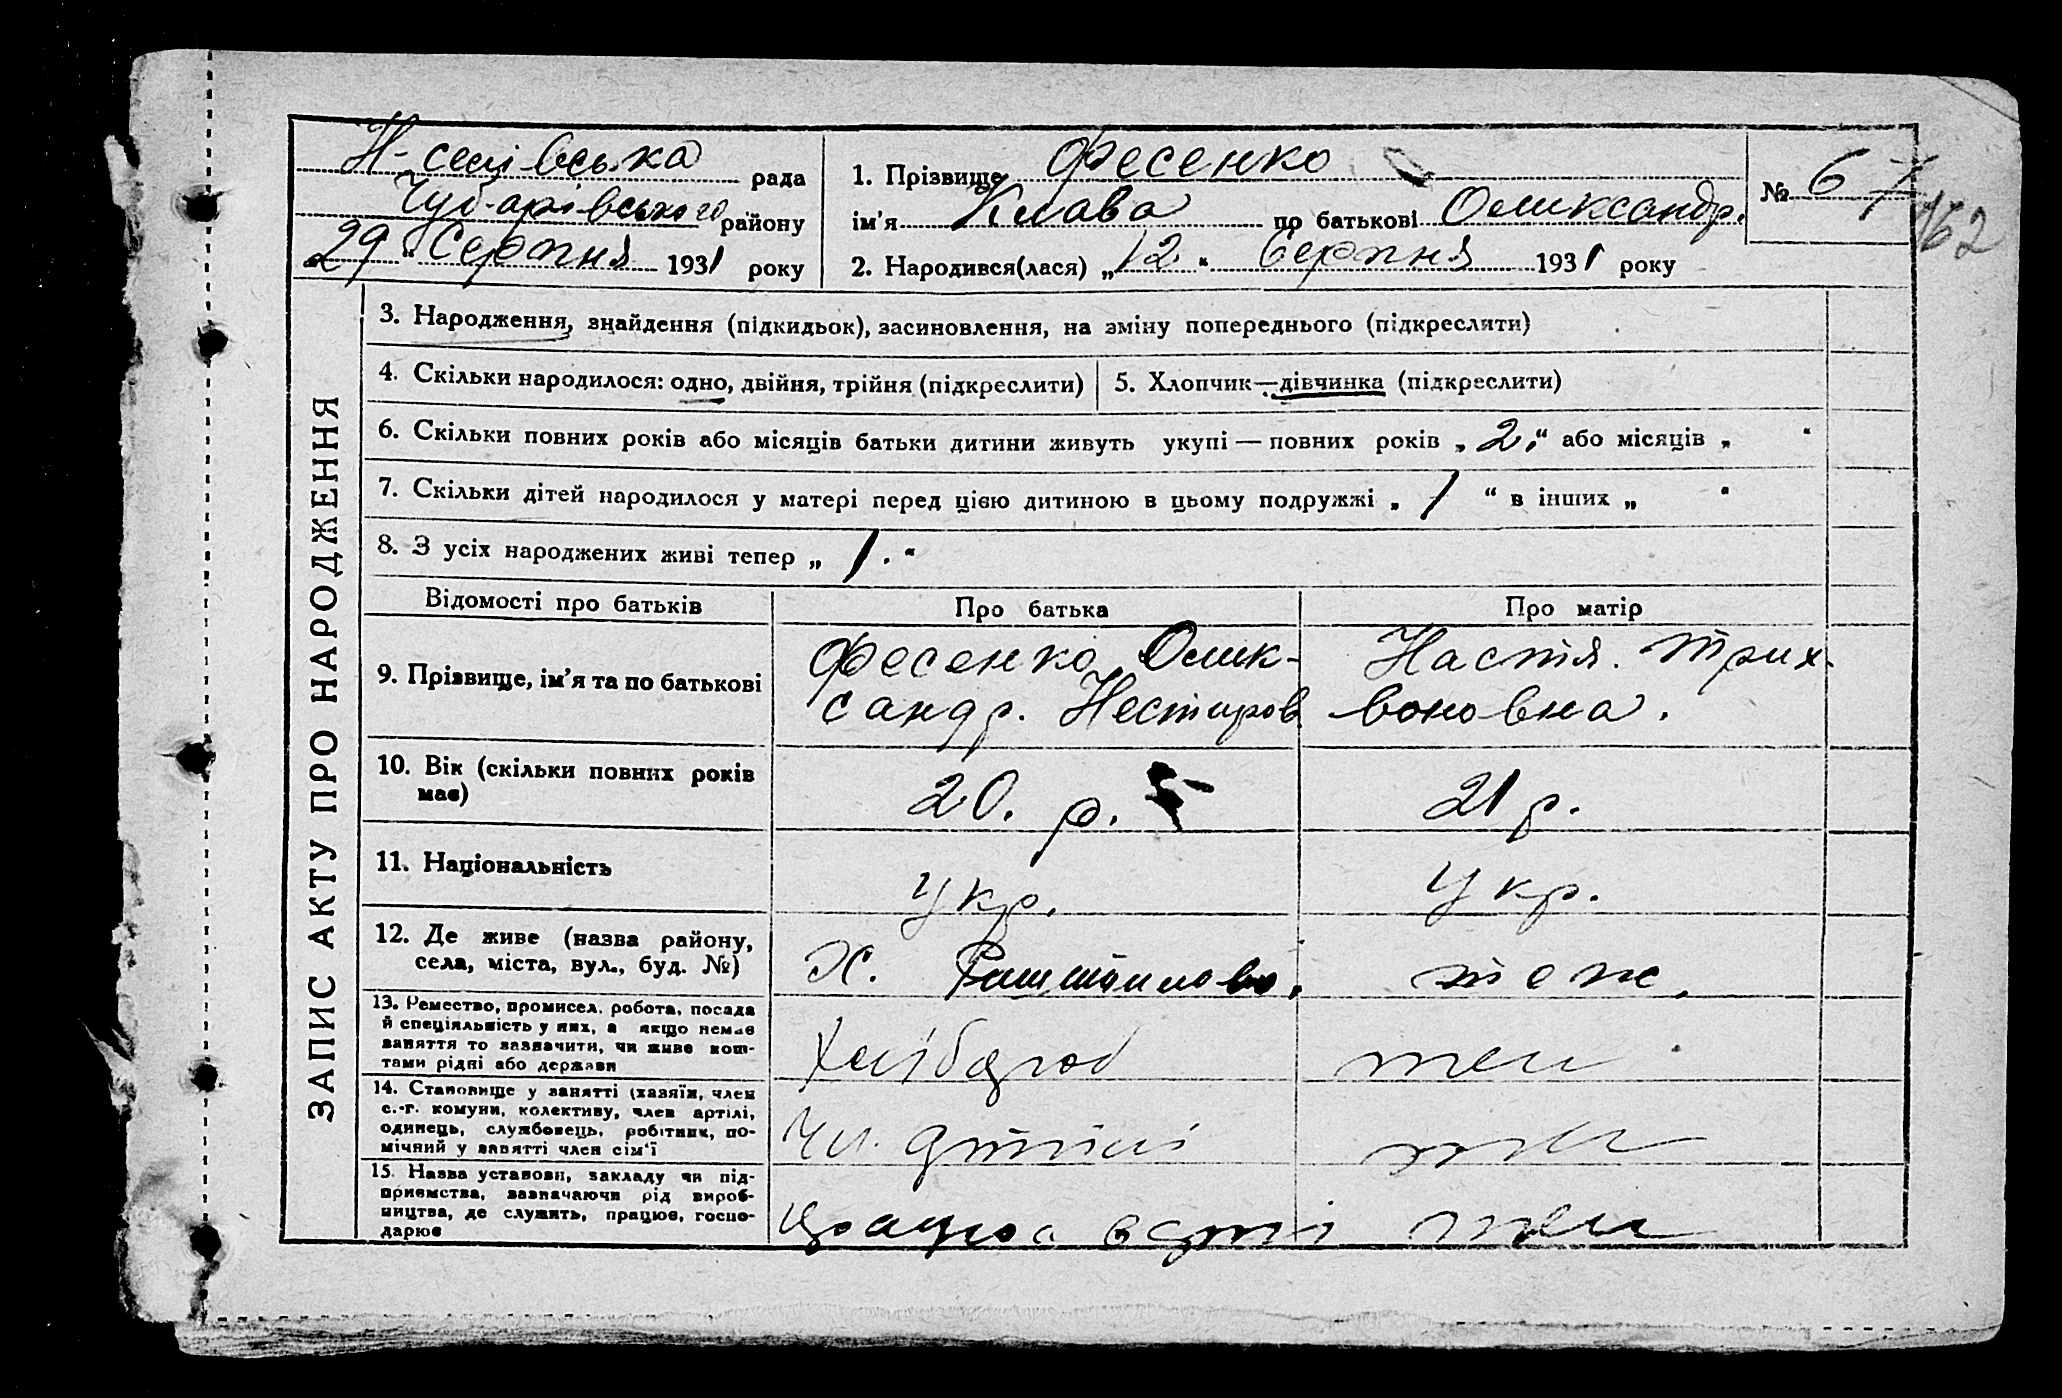 Н- селівська рада
Чубарівського району
„29“ Серпня 1931 року
1. Прізвище Фесенко
ім'я Клава по батькові Олександр.
2. Народився(лася) „12“ Серпня 1931 року
№ 67
162
ЗАПИС АКТУ ПРО НАРОДЖЕННЯ
3. Народження, знайдення (підкидьок), засиновлення, на зміну попереднього (підкреслити)
4. Скільки народилося: одно, двійня, трійня (підкреслити)
5. Хлопчик—дівчинка (підкреслити)
6. Скільки повних років або місяців батьки дитини живуть укупі — повних років „2.“ або місяців „ “
7. Скільки дітей народилося у матері перед цією дитиною в цьому подружжі „1“ в інших „ “
8. З усіх народжених живі тепер „1.“
Відомості про батьків
Про батька
Про матір
9. Прізвище, ім'я та по батькові
Фесенко Олик-
сандр. Нестиров
Настя. Трих-
воновна.
10. Вік (скільки повних років
має)
20. р.
21 р.
11. Національність
Укр.
Укр.
12. Де живе (назва району,
села, міста, вул., буд. №)
Х.
тож.
13. Ремество, промисел, робота, посада
й спеціяльність у них, а якщо немає
заняття то зазначити, чи живе кош-
тами рідні або держави
Хлібороб
теж
14. Становище у занятті (хазяїн, член
с.-г. комуни, колективу, член артілі,
одинець, службовець, робітник, по-
мічний у занятті член сім'ї
Чл. артілі
теж
15. Назва установи, закладу чи під-
приємства, зазначаючи рід вироб-
ництва, де служить, працює, госпо-
дарює
працює в артілі
теж